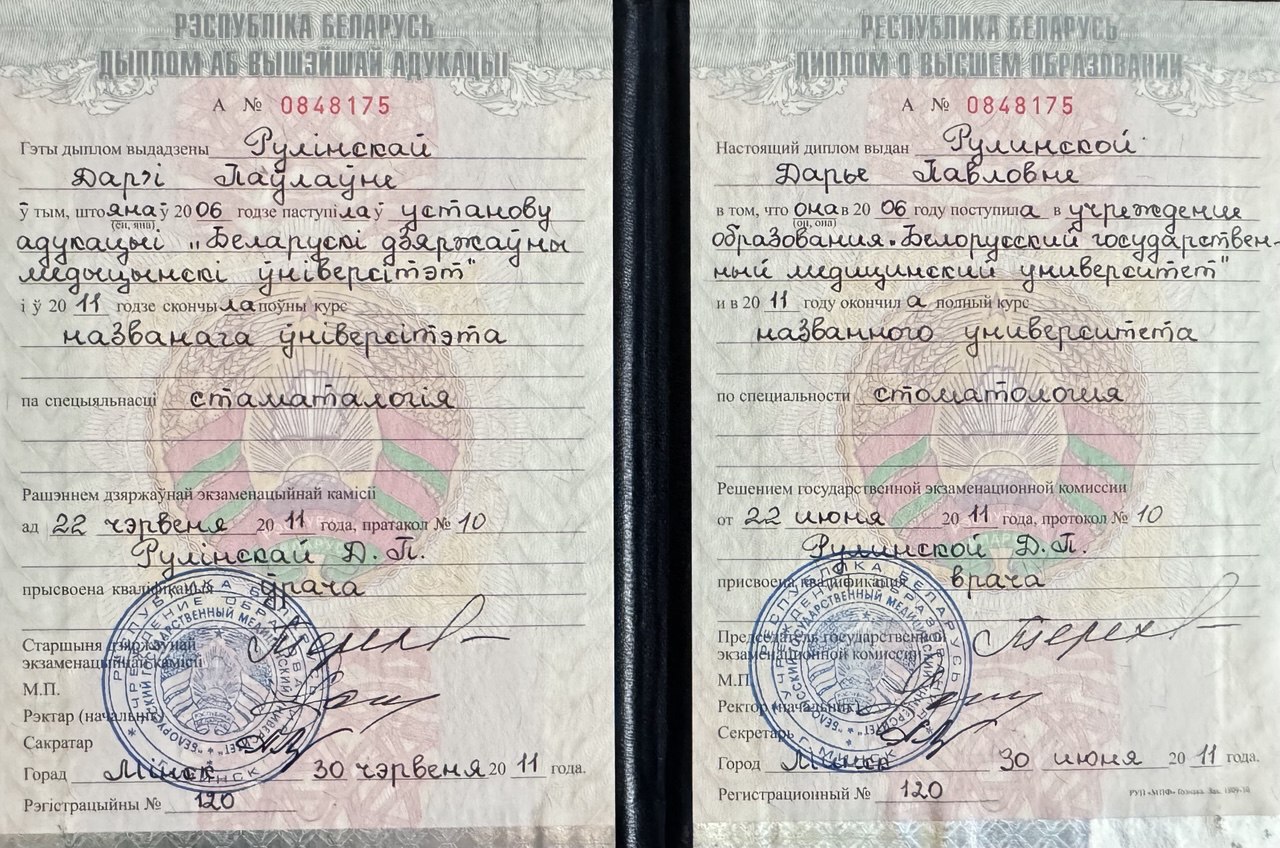 РЭСПУБЛІКА БЕЛАРУСЬ
ДЫПЛОМ АБ ВЫШЭЙШАЙ АДУКАЦЫІ
А № 0848175
Гэты дыплом выдадзены Рулінскай
Дар'і Паўлаўне
ў тым, што яна ў 2006 годзе паступіла ў установу
(ён, яна)
адукацыі "Беларускі дзяржаўны
медыцынскі ўніверсітэт"
і ў 2011 годзе скончыла поўны курс
названага ўніверсітэта
па спецыяльнасці стаматалогія
Рашэннем дзяржаўнай экзаменацыйнай камісіі
ад 22 чэрвеня 2011 года, пратакол № 10
Рулінскай Д. П.
прысвоена кваліфікацыя ўрача
Старшыня дзяржаўнай
экзаменацыйнай камісіі
М.П.
Рэктар (начальнік)
Сакратар
Горад Мінск 30 чэрвеня 2011 года.
Рэгістрацыйны № 120
РЕСПУБЛИКА БЕЛАРУСЬ
ДИПЛОМ О ВЫСШЕМ ОБРАЗОВАНИИ
А № 0848175
Настоящий диплом выдан Рулинской
Дарье Павловне
в том, что она в 2006 году поступила в учреждение
(он, она)
образования "Белорусский государствен-
ный медицинский университет"
и в 2011 году окончила полный курс
названного университета
по специальности стоматология
Решением государственной экзаменационной комиссии
от 22 июня 2011 года, протокол № 10
Рулинской Д.П.
присвоена квалификация врача
Председатель государственной
экзаменационной комиссии
М.П.
Ректор (начальник)
Секретарь
Город Минск 30 июня 2011 года.
Регистрационный № 120
РУП «МПФ» Гознака. Зак. 1809-10